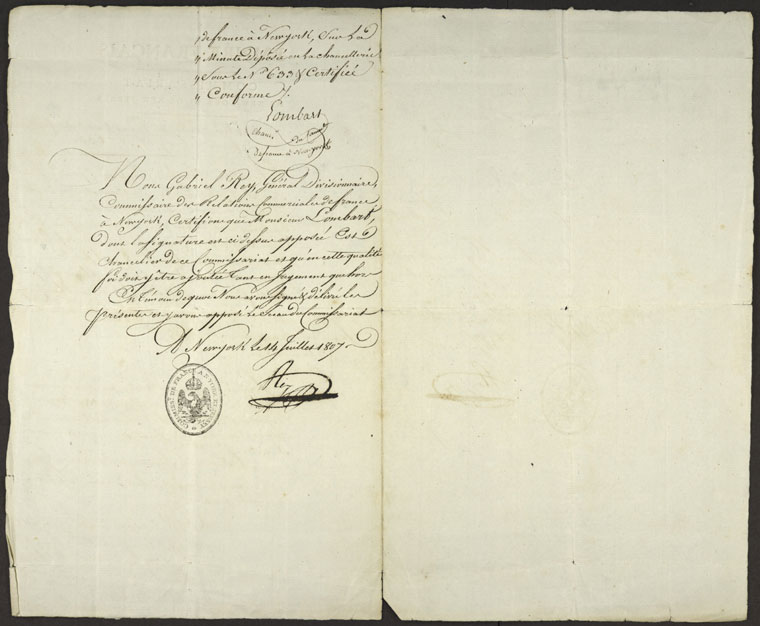 " de france à Newyork, Sur La
" Minute Déposée en La chancellerie
" Sous Le N° 633 & Certifiée
" Conforme /.
Lombart
chanr. du Comt.
de france à Newyork
Nous Gabriel Rey, Général Divisionnaire,
Commissaire des Relations Commerciales de france
à Newyork, Certifions que Monsieur Lombart,
dont la signature est ci dessus apposée Est
chancelier de ce Commissariat et qu'en cette qualité
foi doit y être ajoutée tant en Jugement que hors
En témoin de quoi Nous avons signé & délivré les
présentes et y avons apposé le Sceau du Commissariat
A Newyork le 14 Juillet 1807
Rey